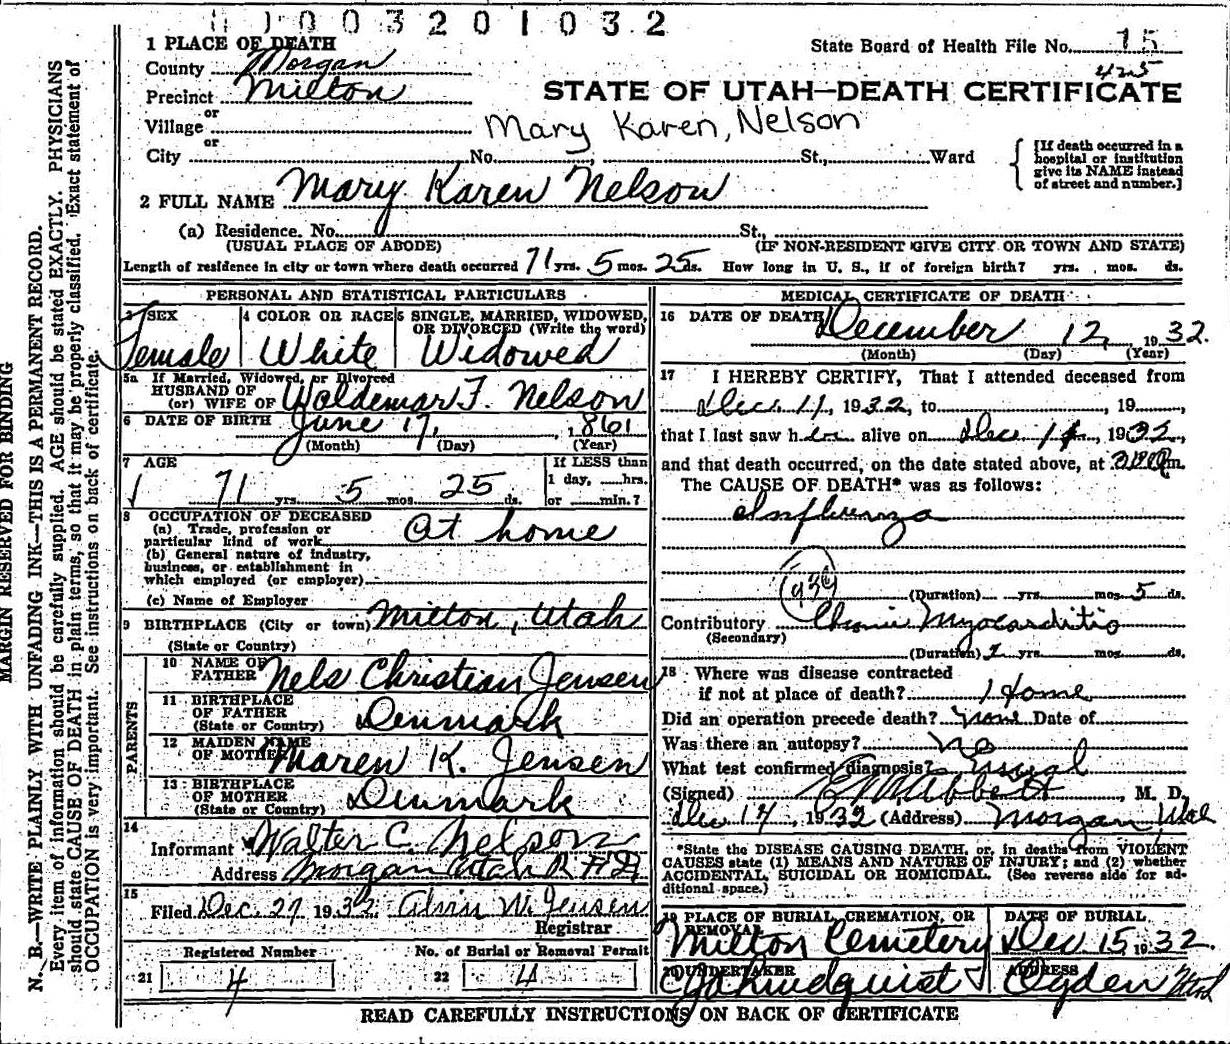 003201032
1 PLACE OF DEATH
State Board of Health File No. 15
County Morgan
425
Precinct Milton
STATE OF UTAH—DEATH CERTIFICATE
or
Village
Mary Karen, Nelson
or
City No. , St., Ward
[If death occurred in a hospital or institution give its NAME instead of street and number.]
2 FULL NAME Mary Karen Nelson
(a) Residence. No. St.,
(USUAL PLACE OF ABODE) (IF NON-RESIDENT GIVE CITY OR TOWN AND STATE)
Length of residence in city or town where death occurred 71 yrs. 5 mos. 25 ds. How long in U. S., if of foreign birth? yrs. mos. ds.
PERSONAL AND STATISTICAL PARTICULARS
3 SEX
Female
4 COLOR OR RACE
White
5 SINGLE, MARRIED, WIDOWED,
OR DIVORCED (Write the word)
Widowed
5a If Married, Widowed, or Divorced
HUSBAND OF
(or) WIFE OF Woldemar F. Nelson
6 DATE OF BIRTH June 17, 1861
(Month) (Day) (Year)
7 AGE
71 yrs. 5 mos. 25 ds.
If LESS than
1 day, hrs.
or min.?
8 OCCUPATION OF DECEASED
(a) Trade, profession or
particular kind of work At home
(b) General nature of industry,
business, or establishment in
which employed (or employer)
(c) Name of Employer
9 BIRTHPLACE (City or town) Milton, Utah
(State or Country)
PARENTS
10 NAME OF
FATHER Nels Christian Jensen
11 BIRTHPLACE
OF FATHER
(State or Country) Denmark
12 MAIDEN NAME
OF MOTHER Maren K. Jensen
13 BIRTHPLACE
OF MOTHER
(State or Country) Denmark
14
Informant Walter C. Nelson
Address Morgan Utah R
15
Filed Dec. 27 1932 Alvin W. Jensen
Registrar
Registered Number
21 4
No. of Burial or Removal Permit
22 4
MEDICAL CERTIFICATE OF DEATH
16 DATE OF DEATH December 12, 1932.
(Month) (Day) (Year)
17 I HEREBY CERTIFY, That I attended deceased from
Dec. 11, 1932, to , 19 ,
that I last saw her alive on Dec 11, 1932,
and that death occurred, on the date stated above, at m.
The CAUSE OF DEATH* was as follows:
Influenza
(Duration) yrs. mos. 5 ds.
Contributory Chronic Myocarditis
(Secondary)
(Duration) 2 yrs. mos. ds.
18 Where was disease contracted
if not at place of death? Home
Did an operation precede death? none Date of
Was there an autopsy? no
What test confirmed diagnosis? usual
(Signed) Abbott, M. D.
Dec 14, 1932 (Address) Morgan Utah
*State the DISEASE CAUSING DEATH, or, in deaths from VIOLENT
CAUSES state (1) MEANS AND NATURE OF INJURY; and (2) whether
ACCIDENTAL, SUICIDAL OR HOMICIDAL. (See reverse side for ad-
ditional space.)
19 PLACE OF BURIAL, CREMATION, OR
REMOVAL
Milton Cemetery
DATE OF BURIAL
Dec 15, 1932.
20 UNDERTAKER
Lindquist
ADDRESS
Ogden Utah
READ CAREFULLY INSTRUCTIONS ON BACK OF CERTIFICATE
MARGIN RESERVED FOR BINDING
N. B.—WRITE PLAINLY WITH UNFADING INK—THIS IS A PERMANENT RECORD.
Every item of information should be carefully supplied. AGE should be stated EXACTLY. PHYSICIANS
should state CAUSE OF DEATH in plain terms, so that it may be properly classified. Exact statement of
OCCUPATION is very important. See instructions on back of certificate.